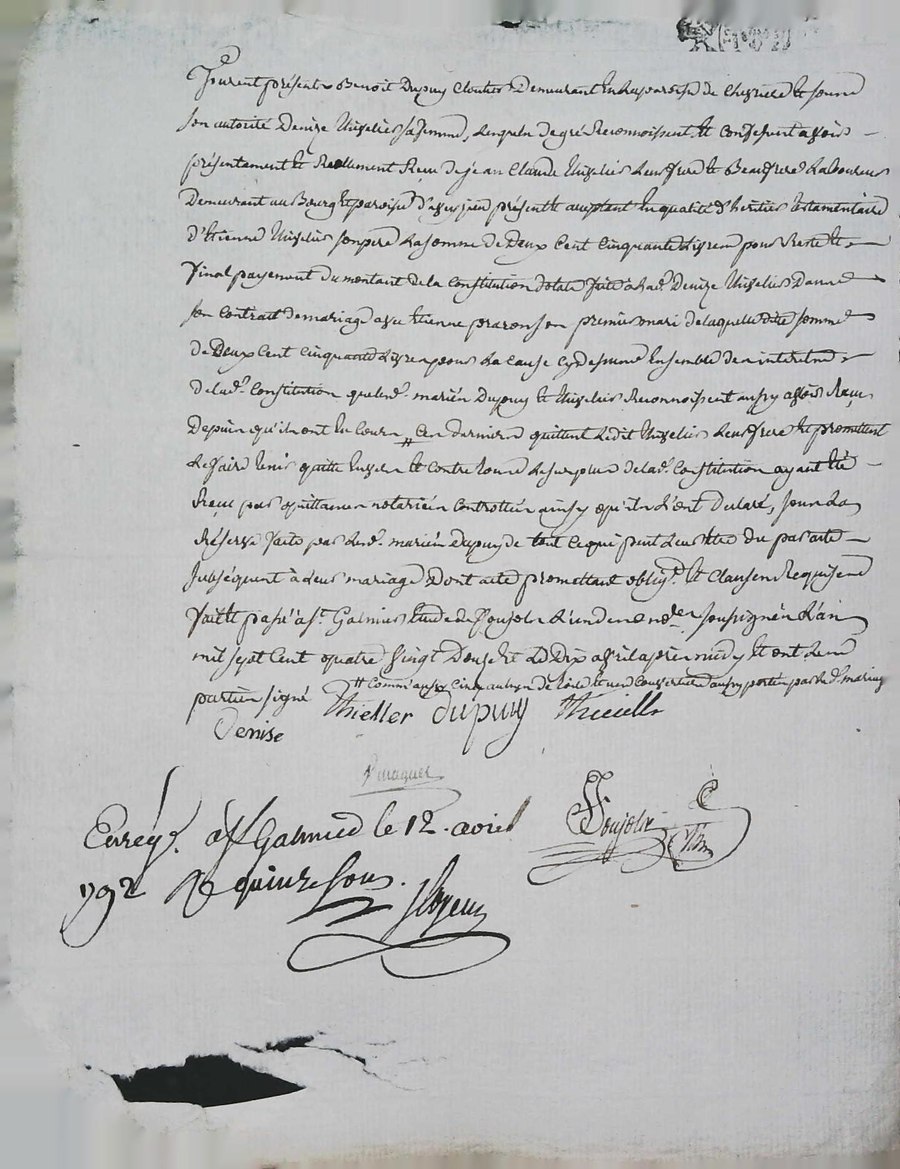 furent présents Benoit Dupuy cloutier demeurant en la paroisse de Chevriere et sous
son autorité Denize Thiellier sa femme, lesquels de gré reconnoissent et confessent avoir
présentement et reellement Reçu de jean Claude Thiellier leur frere et Beaufrere Laboureur
demeurant au Bourg et paroisse d'aveizieu présent et acceptant en qualité d'héritier testamentaire
d'Etienne Thiellier son pere la somme de Deux Cent Cinquante livres pour reste et
final payement du montant de la Constitution dotale faite à lad. Denize Thiellier dans
son Contrat de mariage avec Etienne son premier mari de laquelle dite somme
de Deux Cent Cinquante livres pour la cause cy dessus Ensemble des interets
de lad. Constitution que les d. mariés Dupuy et Thiellier Reconnoissent aussy avoir Reçu
depuis qu'ils ont eu Cours # Ces derniers quittent ledit Thiellier leur frere et promettent
le faire tenir quitte envers et contre tous le surplus de lad. Constitution ayant été
Reçu par quittances notariées controllées ainsy qu'ils l'ont declaré, sous la
Réserve faite par les d. mariés dupuy de tout ce qui peut leur être du par acte
subséquent à leur mariage Dont acte promettant oblig. et Clauses Requises
faitte passé à St. Galmier Etude de Poujols l'un des nores soussignés l'an
mil sept cent quatre vingt Douze et le Dix avril après midy et ont les
parties signé
# Comme aussy Cinq aulnes de toile et une Couverture aussy portés par le d. mariage
Thieller dupuy Thielle
Denise
Enrég. à St Galmier le 12. avril
1792 R quinze sous.
Poujols